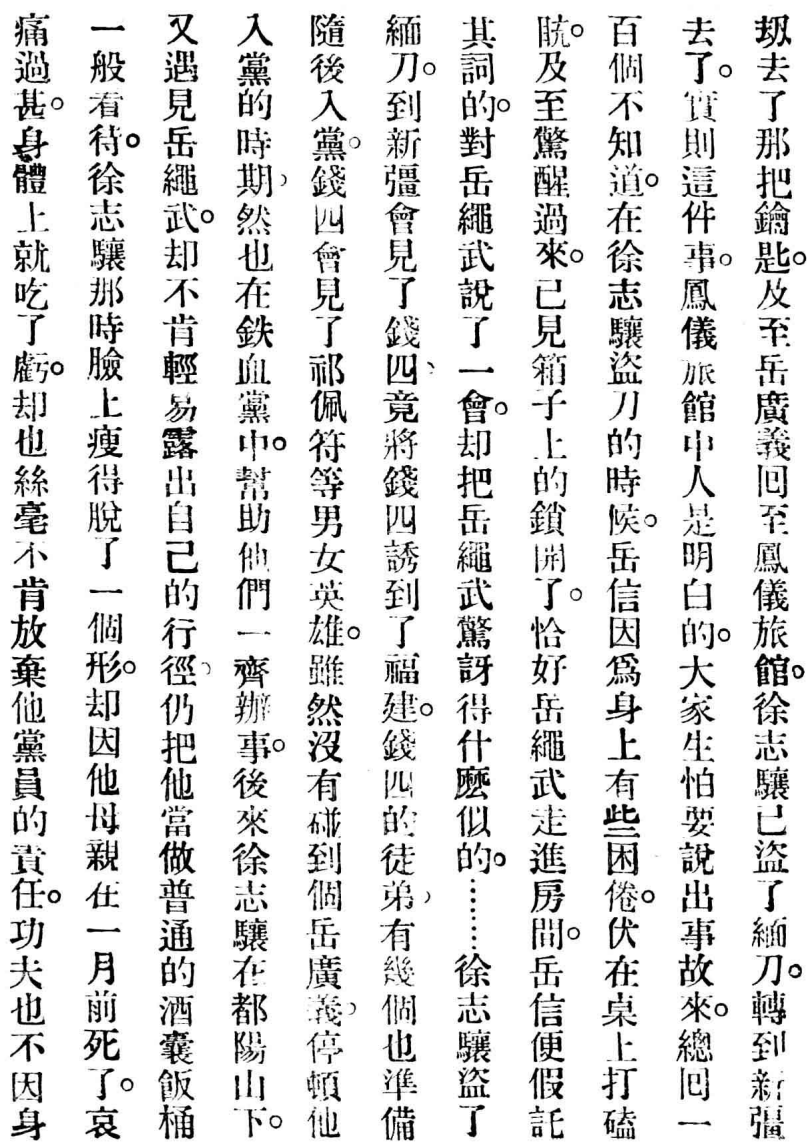 刼去了那把鑰匙。及至岳廣義囘至鳳儀旅館。徐志驤已盜了緬刀。轉到新彊
去了。實則這件事。鳳儀旅館中人是明白的。大家生怕要說出事故來。總囘一
百個不知道。在徐志驤盜刀的時候。岳信因爲身上有些困倦。伏在桌上打磕
䀪。及至驚醒過來。已見箱子上的鎖開了。恰好岳繩武走進房間。岳信便假託
其詞的。對岳繩武說了一會。却把岳繩武驚訝得什麽似的。……徐志驤盜了
緬刀。到新彊會見了錢四、竟將錢四誘到了福建。錢四的徒弟、有幾個也準備
隨後入黨。錢四會見了祁佩符等男女英雄。雖然沒有碰到個岳廣義、停頓他
入黨的時期、然也在鉄血黨中。幫助他們一齊辦事。後來徐志驤在都陽山下。
又遇見岳繩武。却不肯輕易露出自己的行徑、仍把他當做普通的酒囊飯桶
一般看待。徐志驤那時臉上瘦得脫了一個形。却因他母親在一月前死了。哀
痛過甚。身體上就吃了虧。却也絲毫不肯放棄他黨員的責任。功夫也不因身